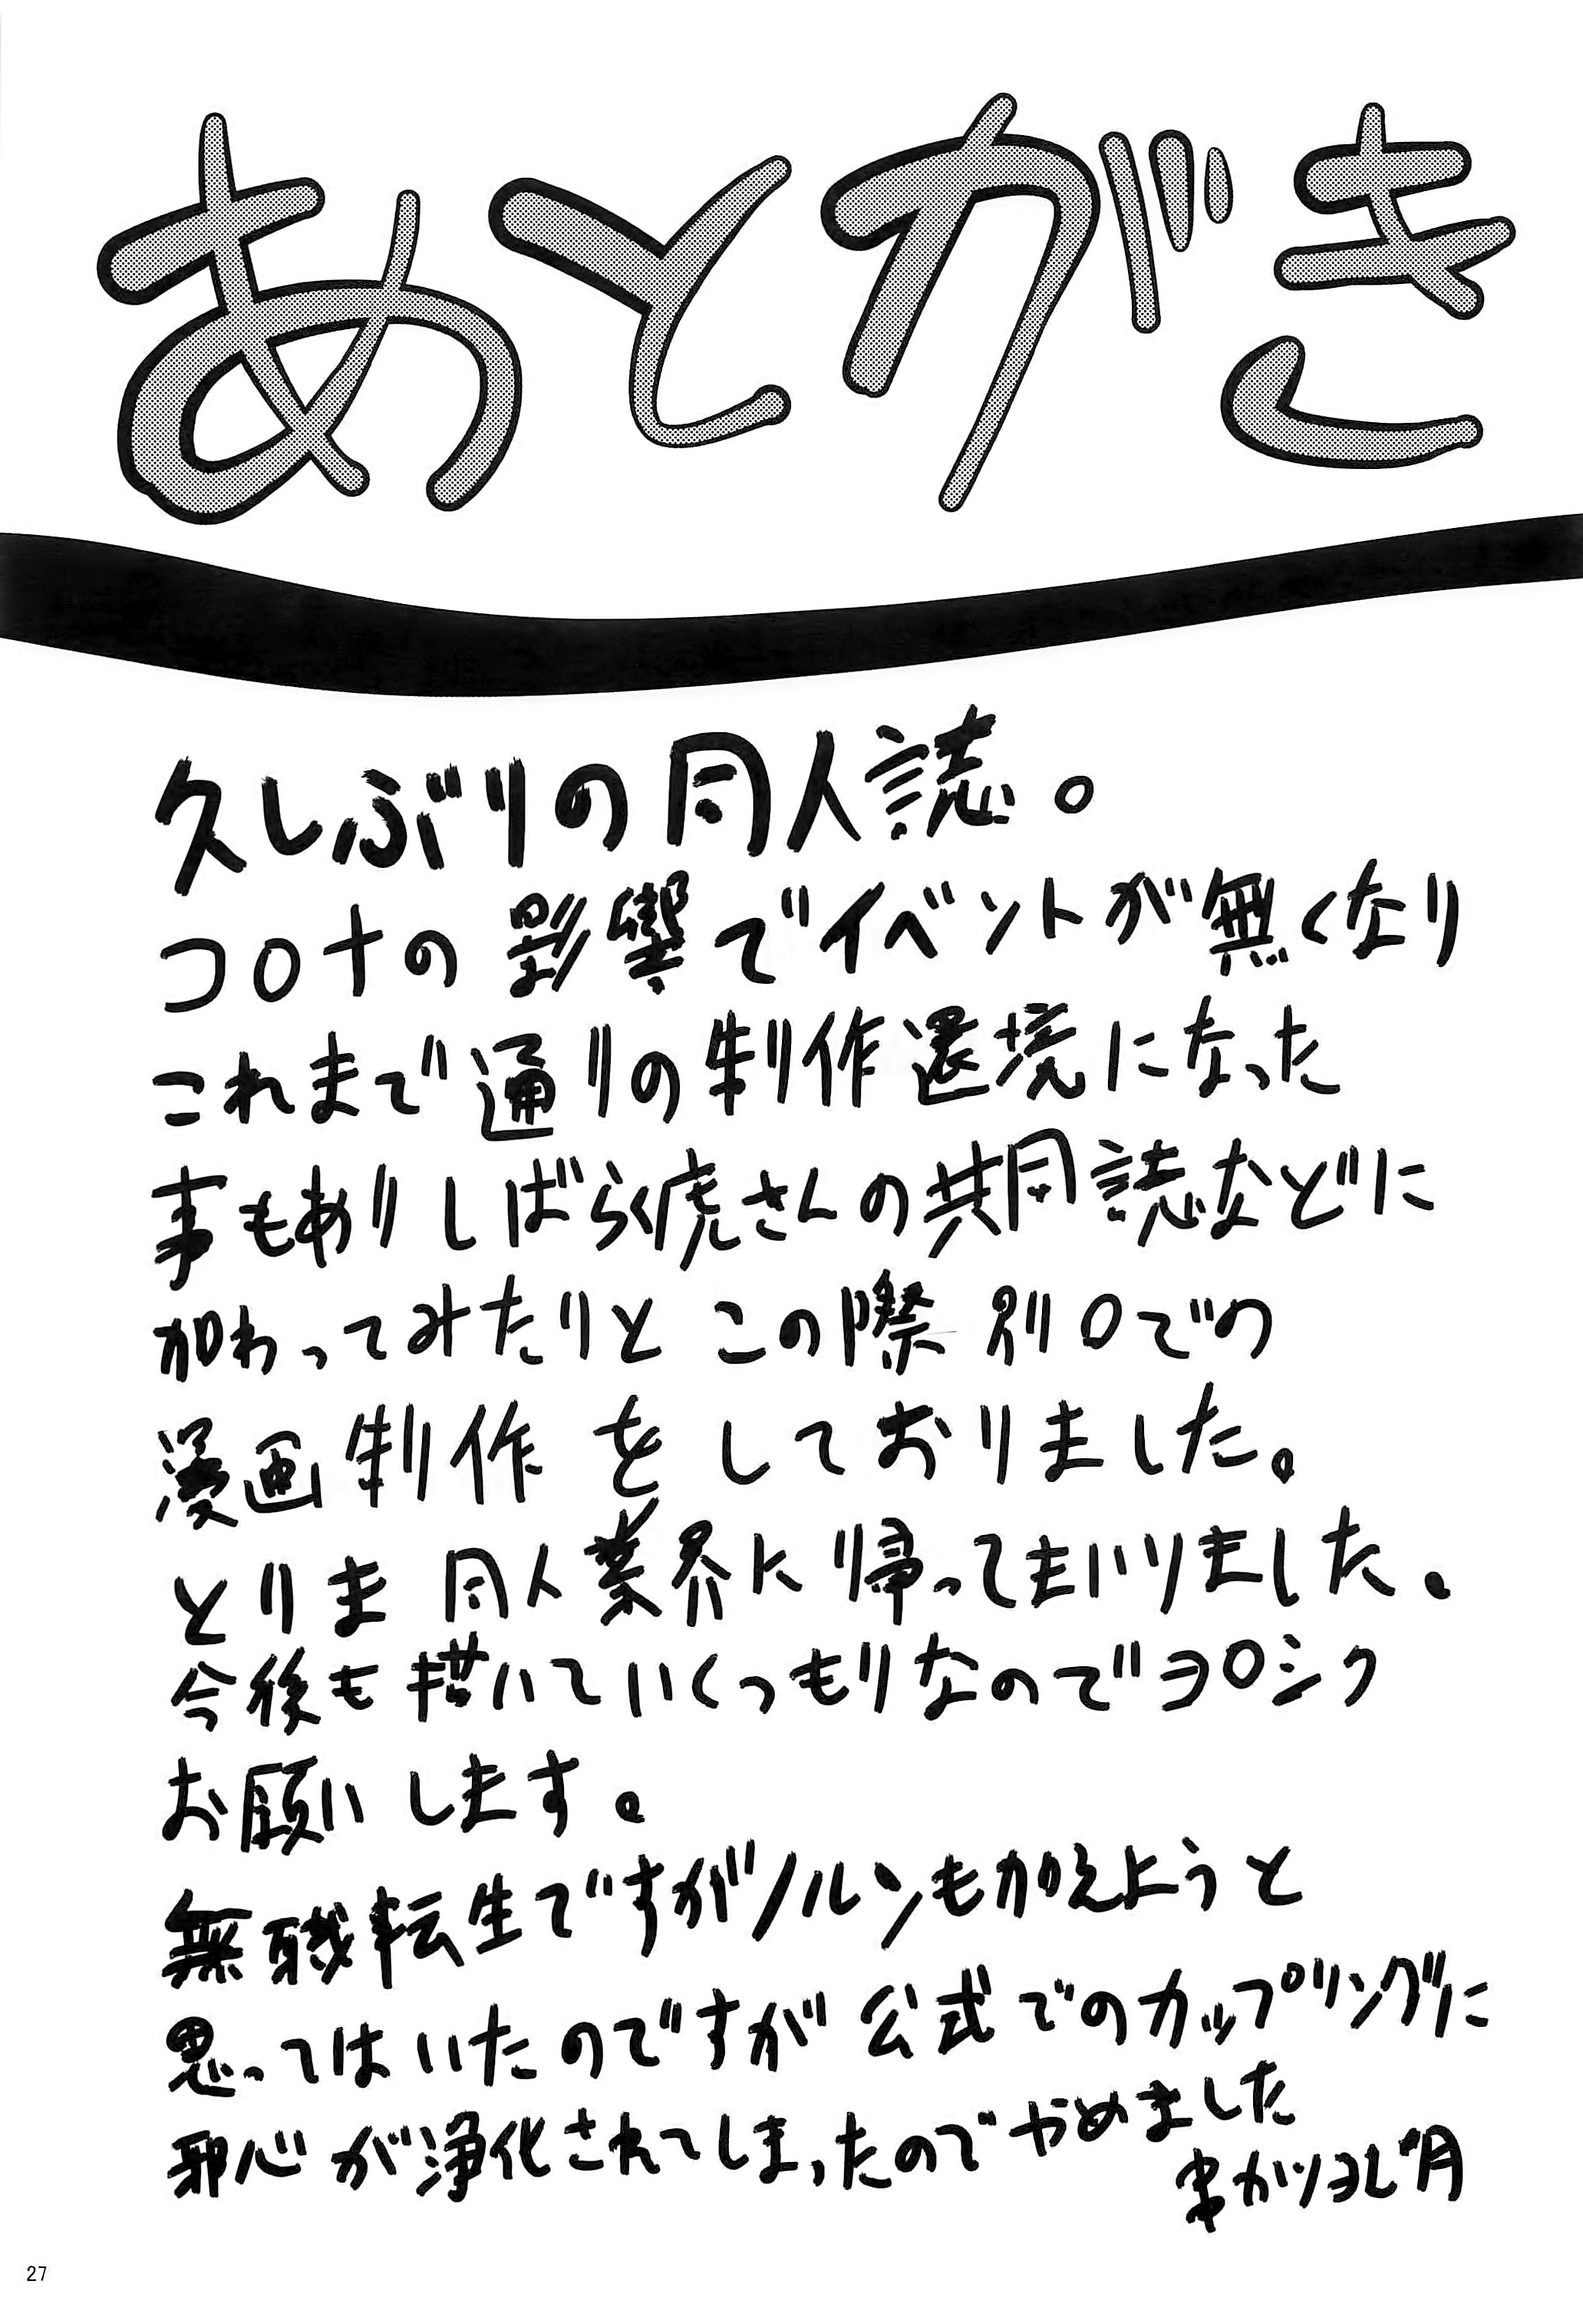 あとがき
久しぶりの同人誌。
コロナの影響でイベントが無くなり
これまで通りの制作還境になった
事もありしばらく虎さんの共同誌などに
加わってみたりとこの際別口での
漫画制作をしておりました。
とりま同人業界に帰ってまいりました。
今後も描いていくつもりなのでヨロシク
お願いします。
無職転生ですがノルンも加えようと
思ってはいたのですが公式でのカップリングに
邪心が浄化されてしまったのでやめました
串かツヨし
27